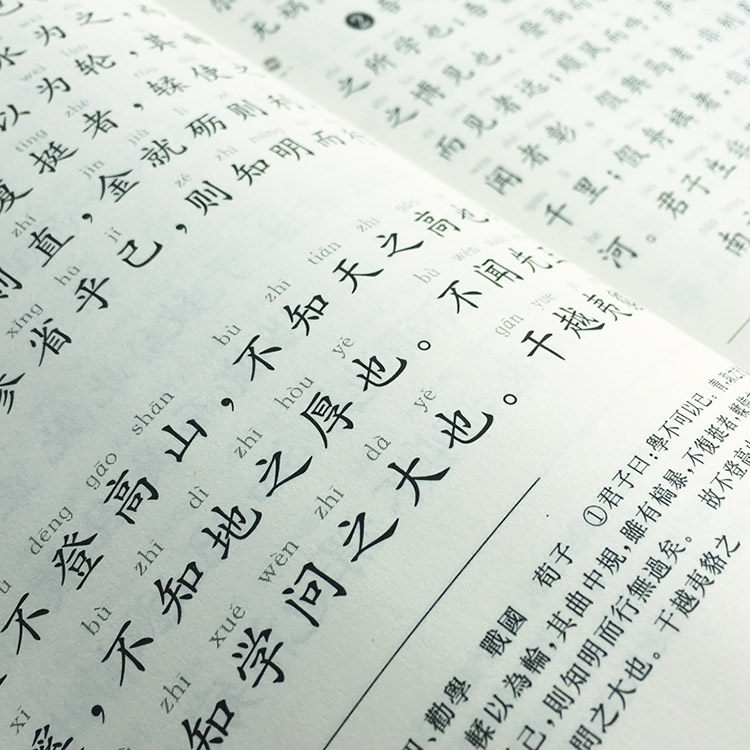 水为之
wéi lún
以为轮,其
zhě
复挺者,輮使
zhí jīn jiù lì
则直,金就砺则利
xǐng hū jǐ zé zhī míng
参省乎己,则知明而
dēng gāo shān bù zhī tiān zhī gāo
不登高山,不知天之高也
bù zhī dì zhī hòu yě bù wén
不知地之厚也。不闻先
zhī xué wèn zhī dà yě gān yuè yí
知学问之大也。干越夷
勸學 戰國 荀子 ①君子曰:學不可以已。青,取之
輮以為輪,其曲中規,雖有槁暴,不復挺者,輮使
己,則知明而行無過矣。 故不登高山
問之大也。干越夷貉之
❷
之所学也;
之博见也。登高而
而见者远;顺风而呼,
闻者彰。假舆马者,非利
千里;假舟楫者,非
河。君子生
南